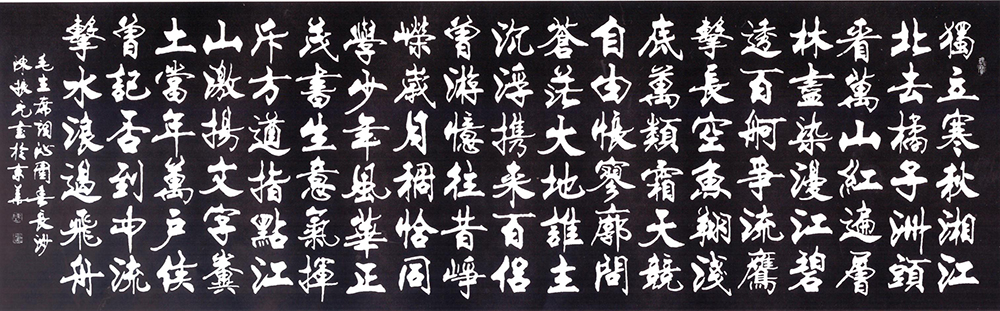 獨立寒秋湘江
北去橘子洲頭
看萬山紅遍層
林盡染漫江碧
透百舸爭流鷹
擊長空魚翔淺
底萬類霜天競
自由悵寥廓問
蒼茫大地誰主
沉浮携来百侣
曾游憶往昔崢
嶸歲月稠恰同
學少年風華正
茂書生意氣揮
斥方道指點江
山激揚文字糞
土當年萬戶侯
曾記否到中流
擊水浪遏飛舟
毛主席詞沁園春長沙
陳振元書於京華